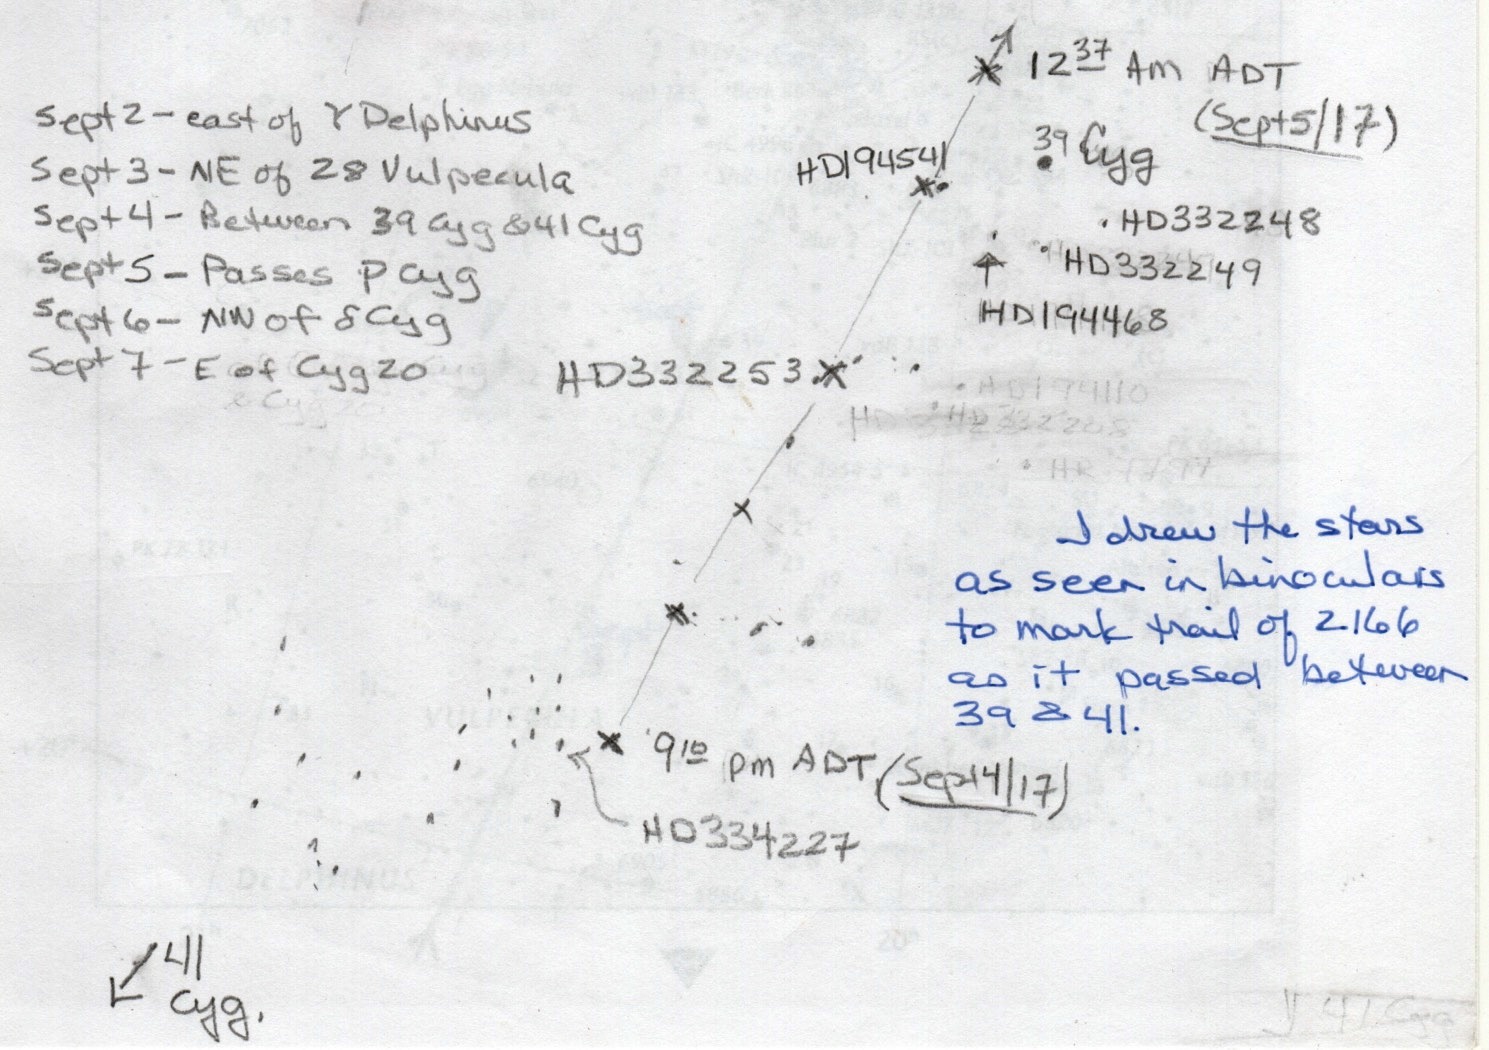 12 37 Am ADT
(Sept5/17)
Sept 2 - east of γ Delphinus
Sept 3 - NE of 28 Vulpecula
Sept 4 - Between 39 Cyg & 41 Cyg
Sept 5 - Passes P Cyg
Sept 6 - NW of δ Cyg
Sept 7 - E of Cyg 20
39 Cyg
HD194541
HD332248
HD332249
HD194468
HD332253
HD194110
I drew the stars
as seen in binoculars
to mark trail of 2166
as it passed between
39 & 41.
VULPECULA
9 10 pm ADT (Sept4/17)
HD334227
DELPHINUS
20h
41
Cyg.
41 Cyg